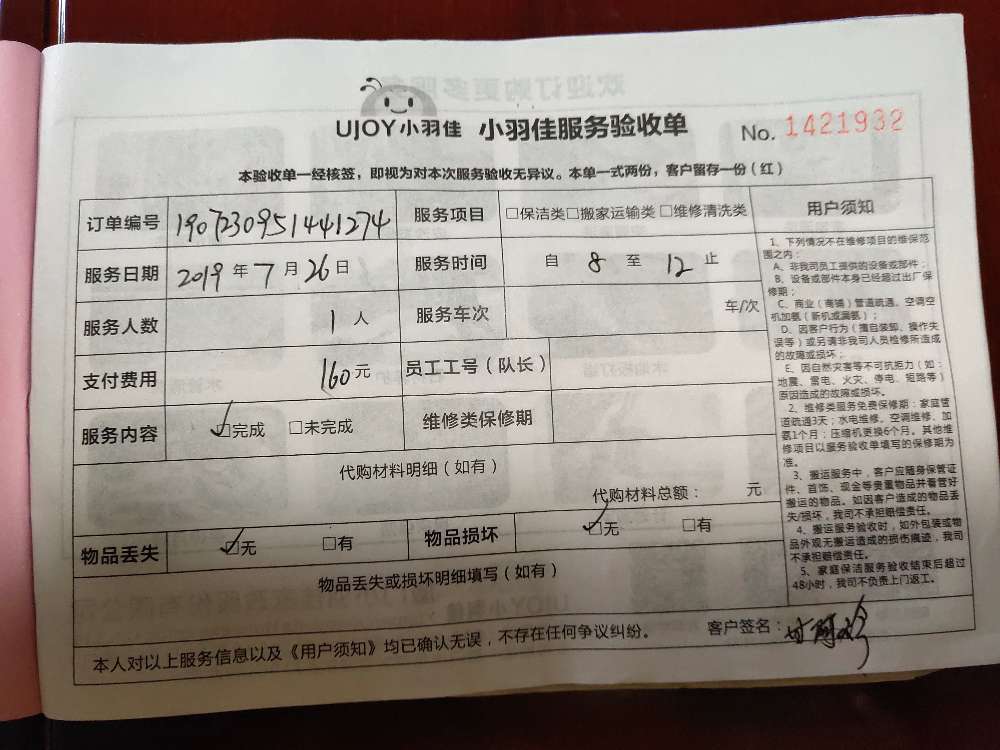 UJOY小羽佳 小羽佳服务验收单 No. 1421932
本验收单一经核签，即视为对本次服务验收无异议。本单一式两份，客户留存一份（红）
订单编号 1907230951441274 服务项目 □保洁类□搬家运输类□维修清洗类
服务日期 2019年7月26日 服务时间 自 8 至 12 止
服务人数 1人 服务车次 车/次
支付费用 160元 员工工号（队长）
服务内容 ☑完成 □未完成 维修类保修期
代购材料明细（如有）
代购材料总额： 元
物品丢失 ☑无 □有 物品损坏 ☑无 □有
物品丢失或损坏明细填写（如有）
本人对以上服务信息以及《用户须知》均已确认无误，不存在任何争议纠纷。 客户签名：
用户须知
1、下列情况不在维修项目的维保范
围之内：
A、非我司员工提供的设备或部件；
B、设备或部件本身已经超过出厂保
修期；
C、商业（商铺）管道疏通、空调空
机加氨（新机或漏氨）；
D、因客户行为（擅自装卸、操作失
误等）或另请非我司人员检修所造成
的故障或损坏；
E、因自然灾害等不可抗拒力（如：
地震、雷电、火灾、停电、短路等）
原因造成的故障或损坏。
2、维修类服务免费保修期：家庭管
道疏通3天；水电维修、空调维修、加
氨1个月；压缩机更换6个月。其他维
修项目以服务验收单填写的保修期为
准。
3、搬运服务中，客户应随身保管证
件、首饰、现金等贵重物品并看管好
搬运的物品。如因客户造成的物品丢
失/损坏，我司不承担赔偿责任。
4、搬运服务验收时，如外包装或物
品外观无搬运造成的损伤痕迹，我司
不承担赔偿责任。
5、家庭保洁服务验收结束后超过
48小时，我司不负责上门返工。